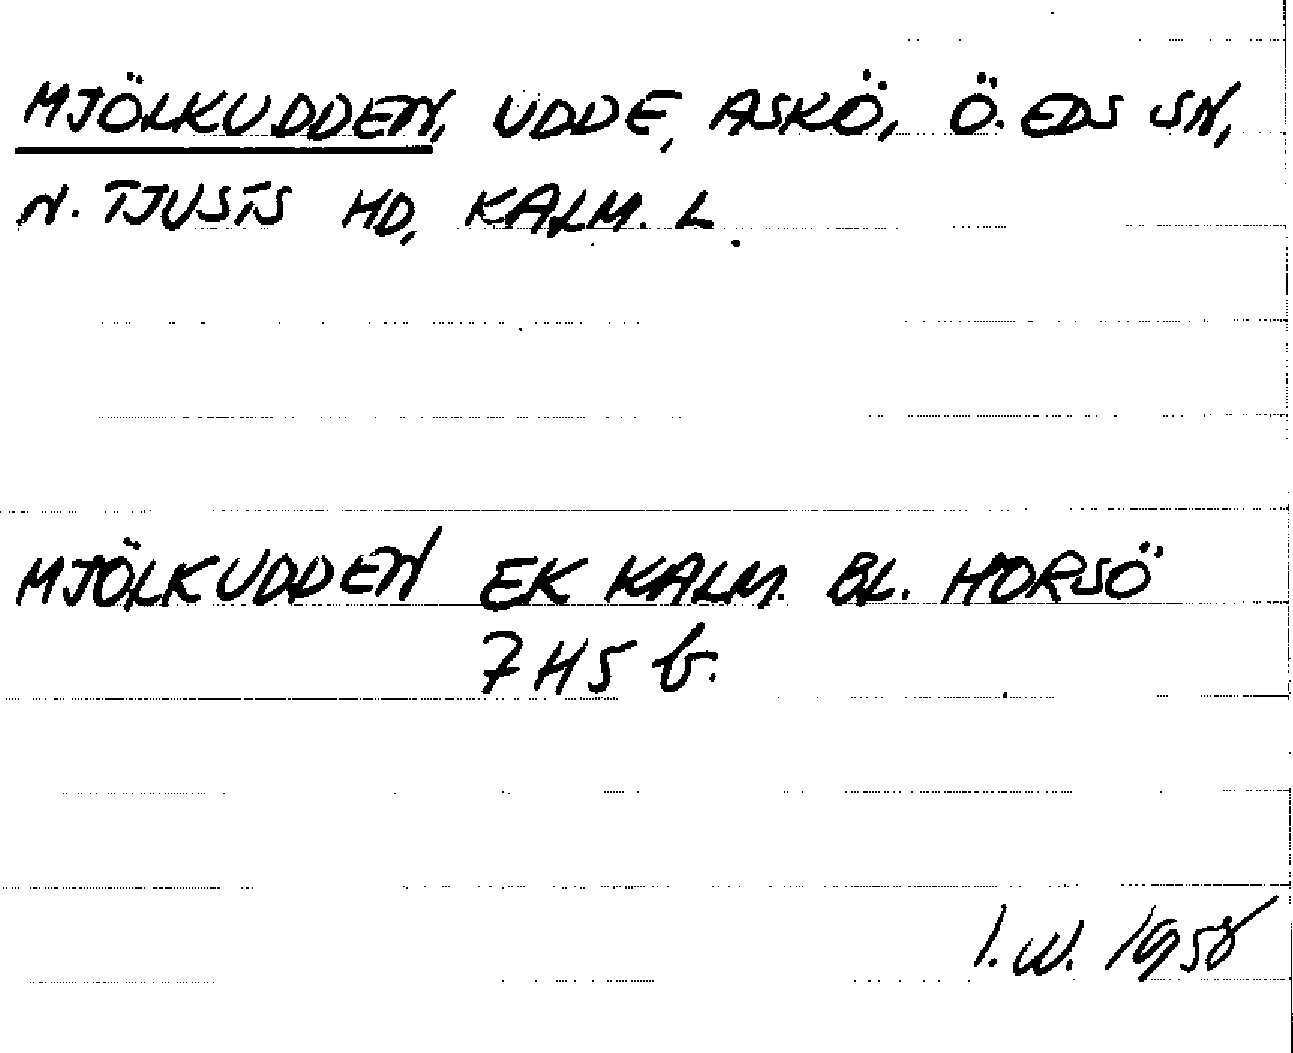 MJÖLKUDDEN, UDDE, ASKÖ, Ö. EDS SN,
N. TJUSTS HD, KALM. L.
MJÖLKUDDEN EK KALM. BL. HORSÖ
7H5 b.
I.W. 1958